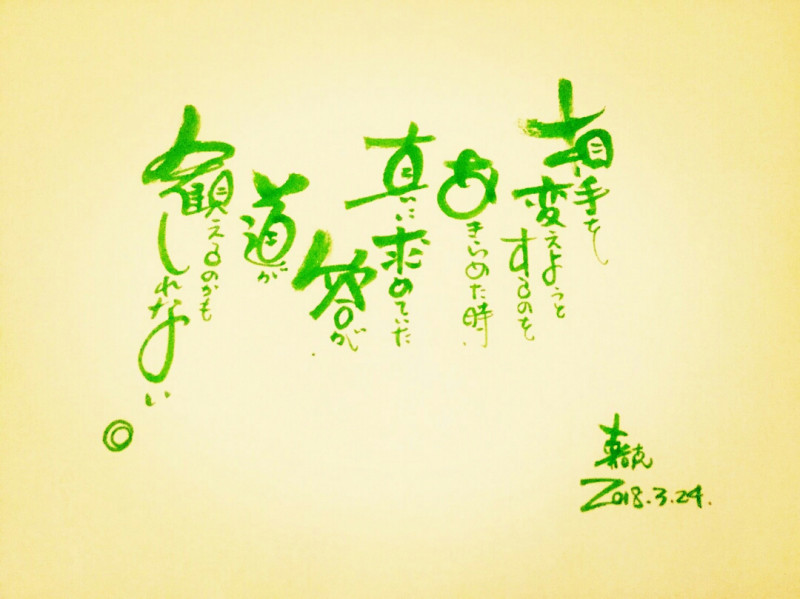 相手を
変えようと
するのを
あきらめた時
真に求めていた
答が
道が
観えるのかも
しれない
2018.3.24.